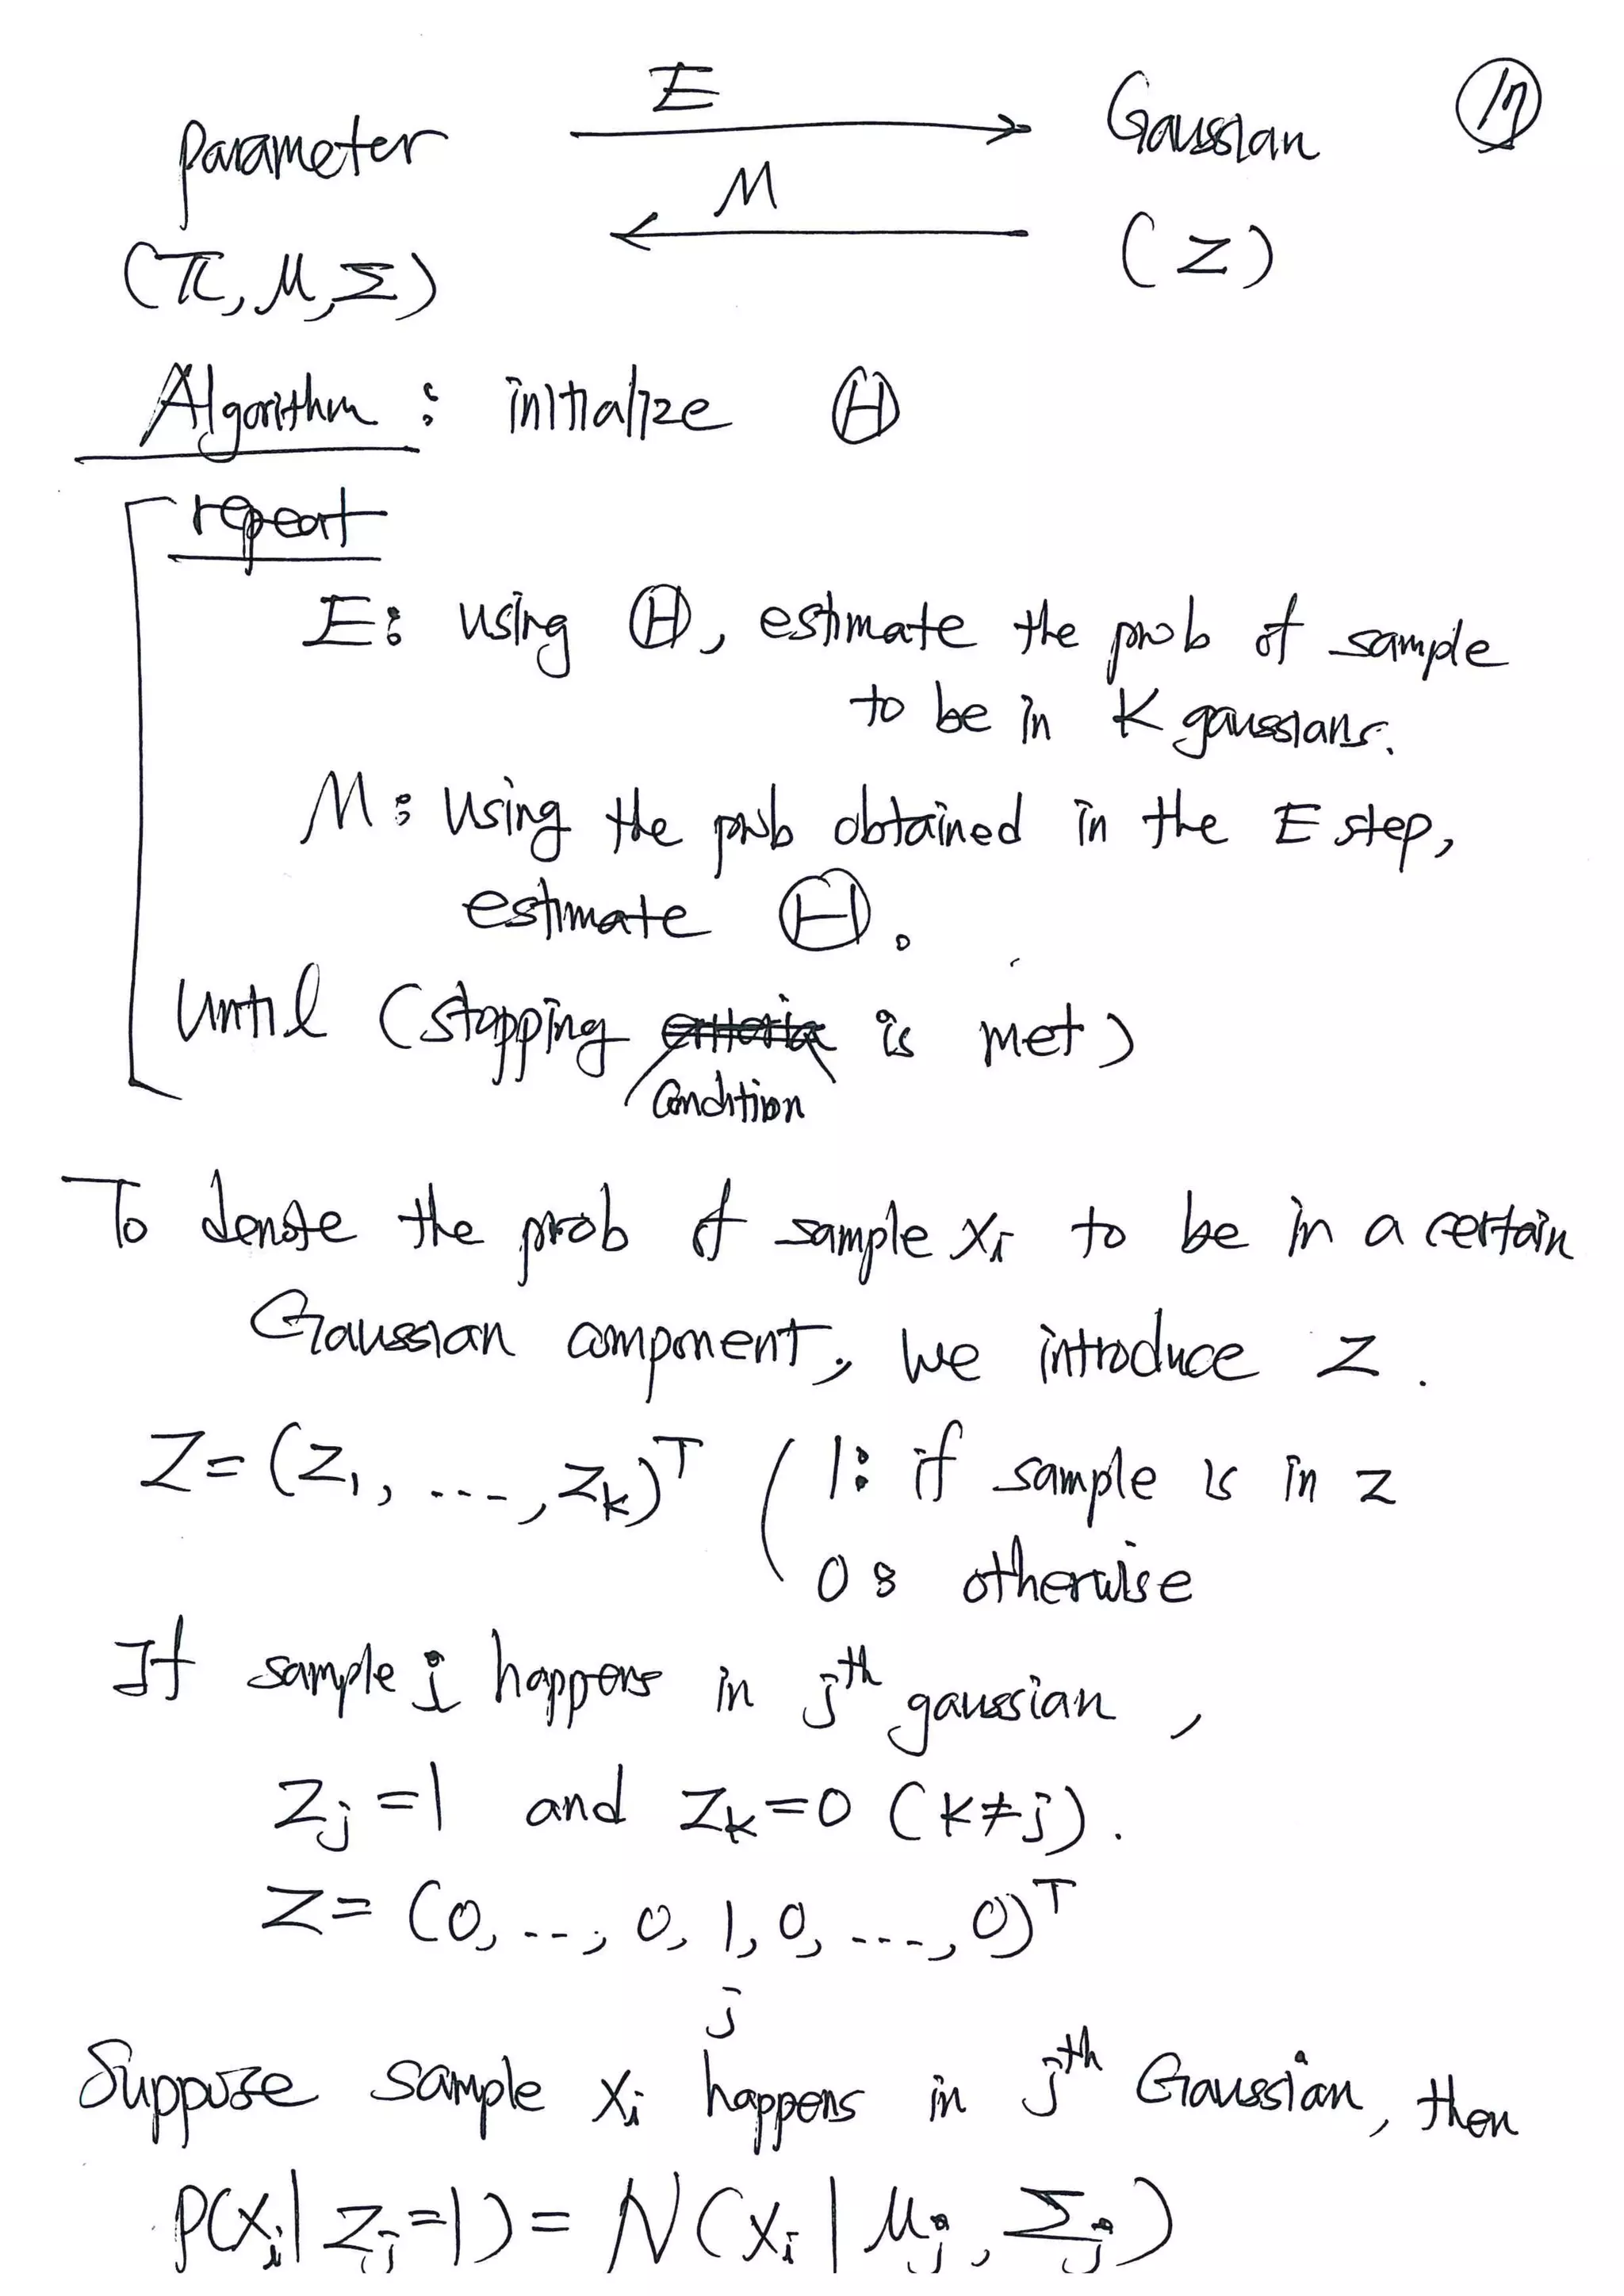 E
parameter Gaussian 17
M
(π, μ, Σ) (z)
Algorithm : initialize Θ
repeat
E: using Θ, estimate the prob of sample
to be in K gaussians.
M: Using the prob obtained in the E step,
estimate Θ.
Until (stopping criteria is met)
Condition
To denote the prob of sample xi to be in a certain
Gaussian component, we introduce z.
Z = (z1, ..., zk)^T ( 1: if sample is in z
0: otherwise
If sample i happens in j^th gaussian,
zj = 1 and zk = 0 (k≠j).
Z = (0, ..., 0, 1, 0, ..., 0)^T
j
Suppose sample xi happens in j^th Gaussian, then
p(xi | zj = 1) = N(xi | μj, Σj)